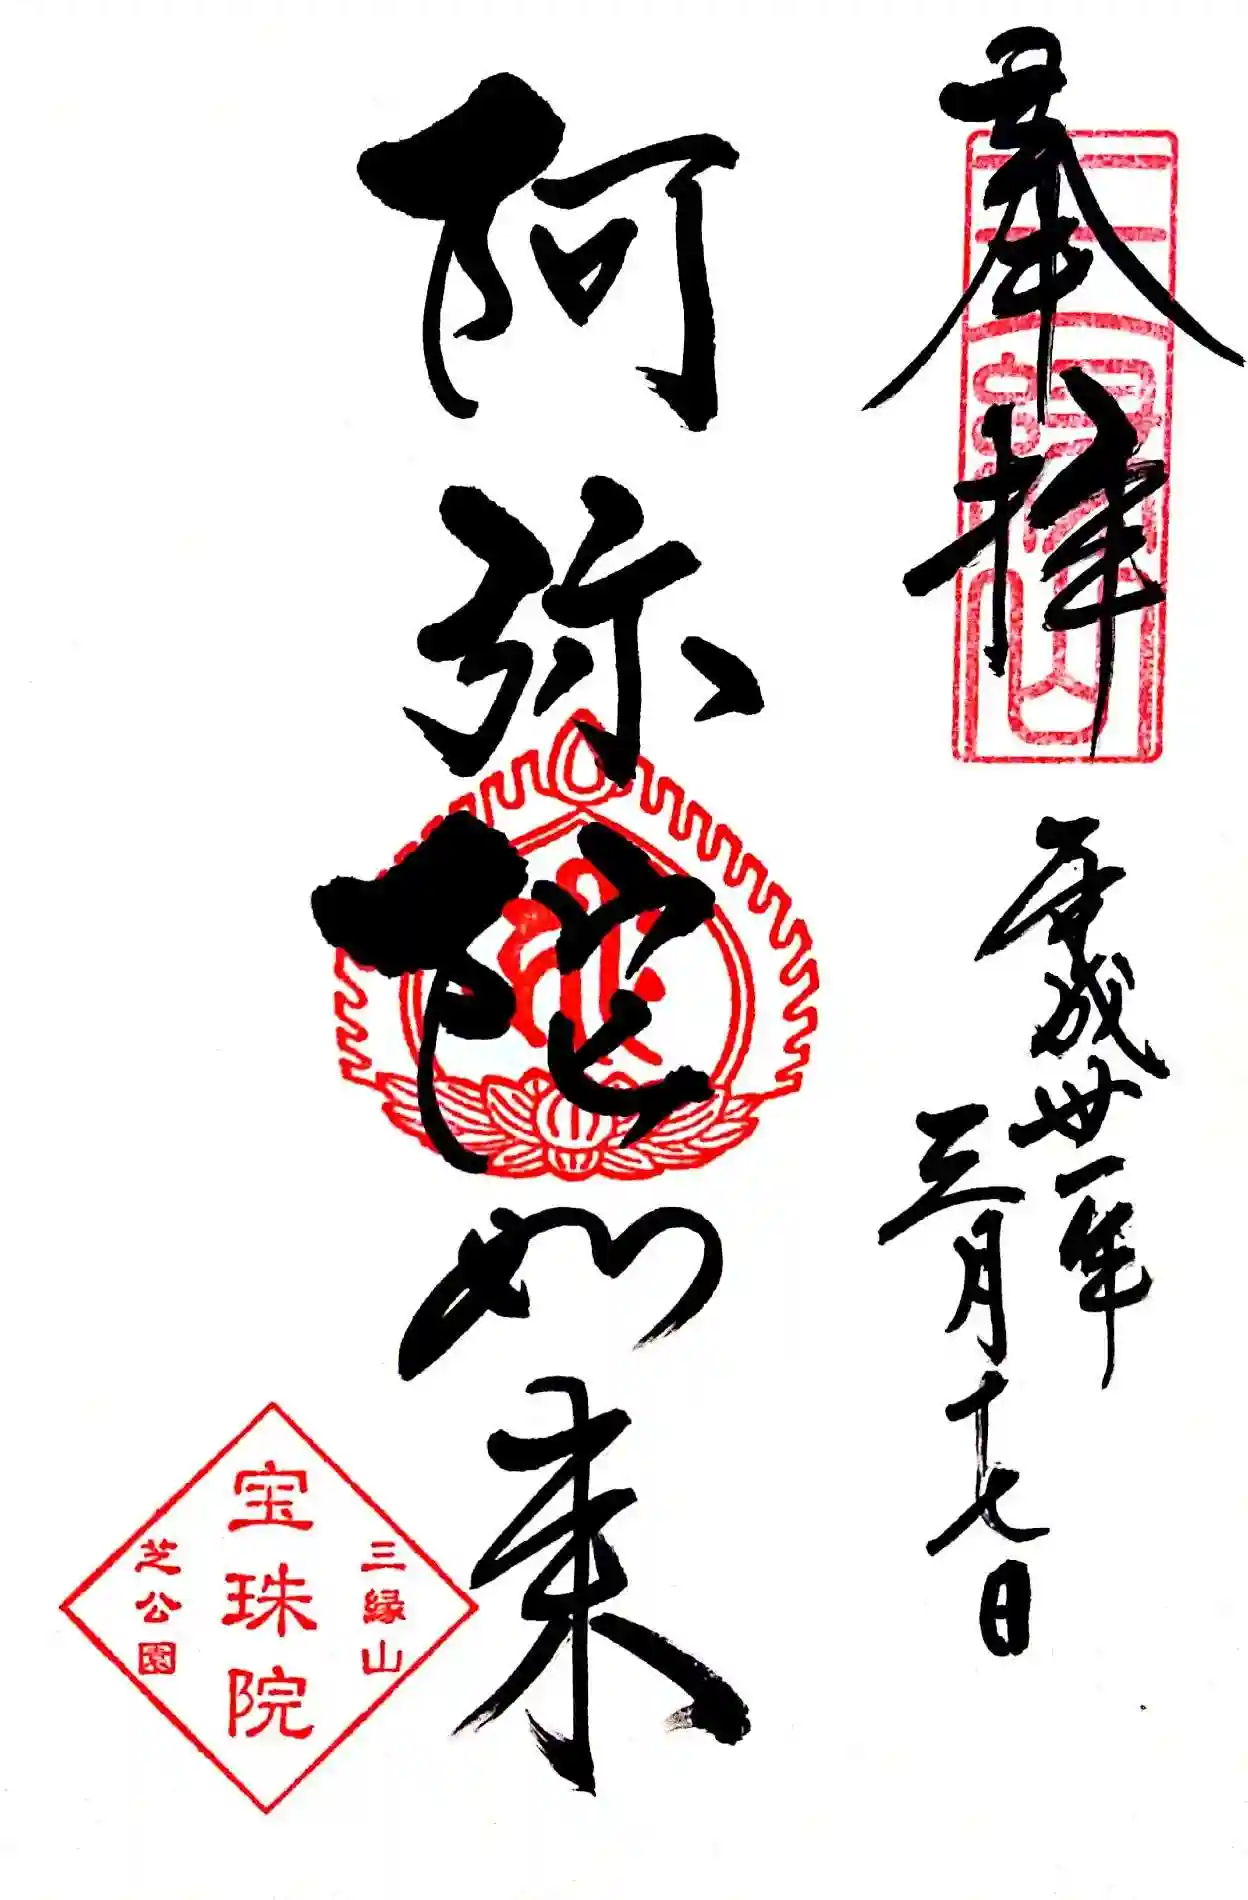 奉拝
三縁山
平成丗一年
三月十七日
阿弥陀如来
三縁山
宝珠院
芝公園